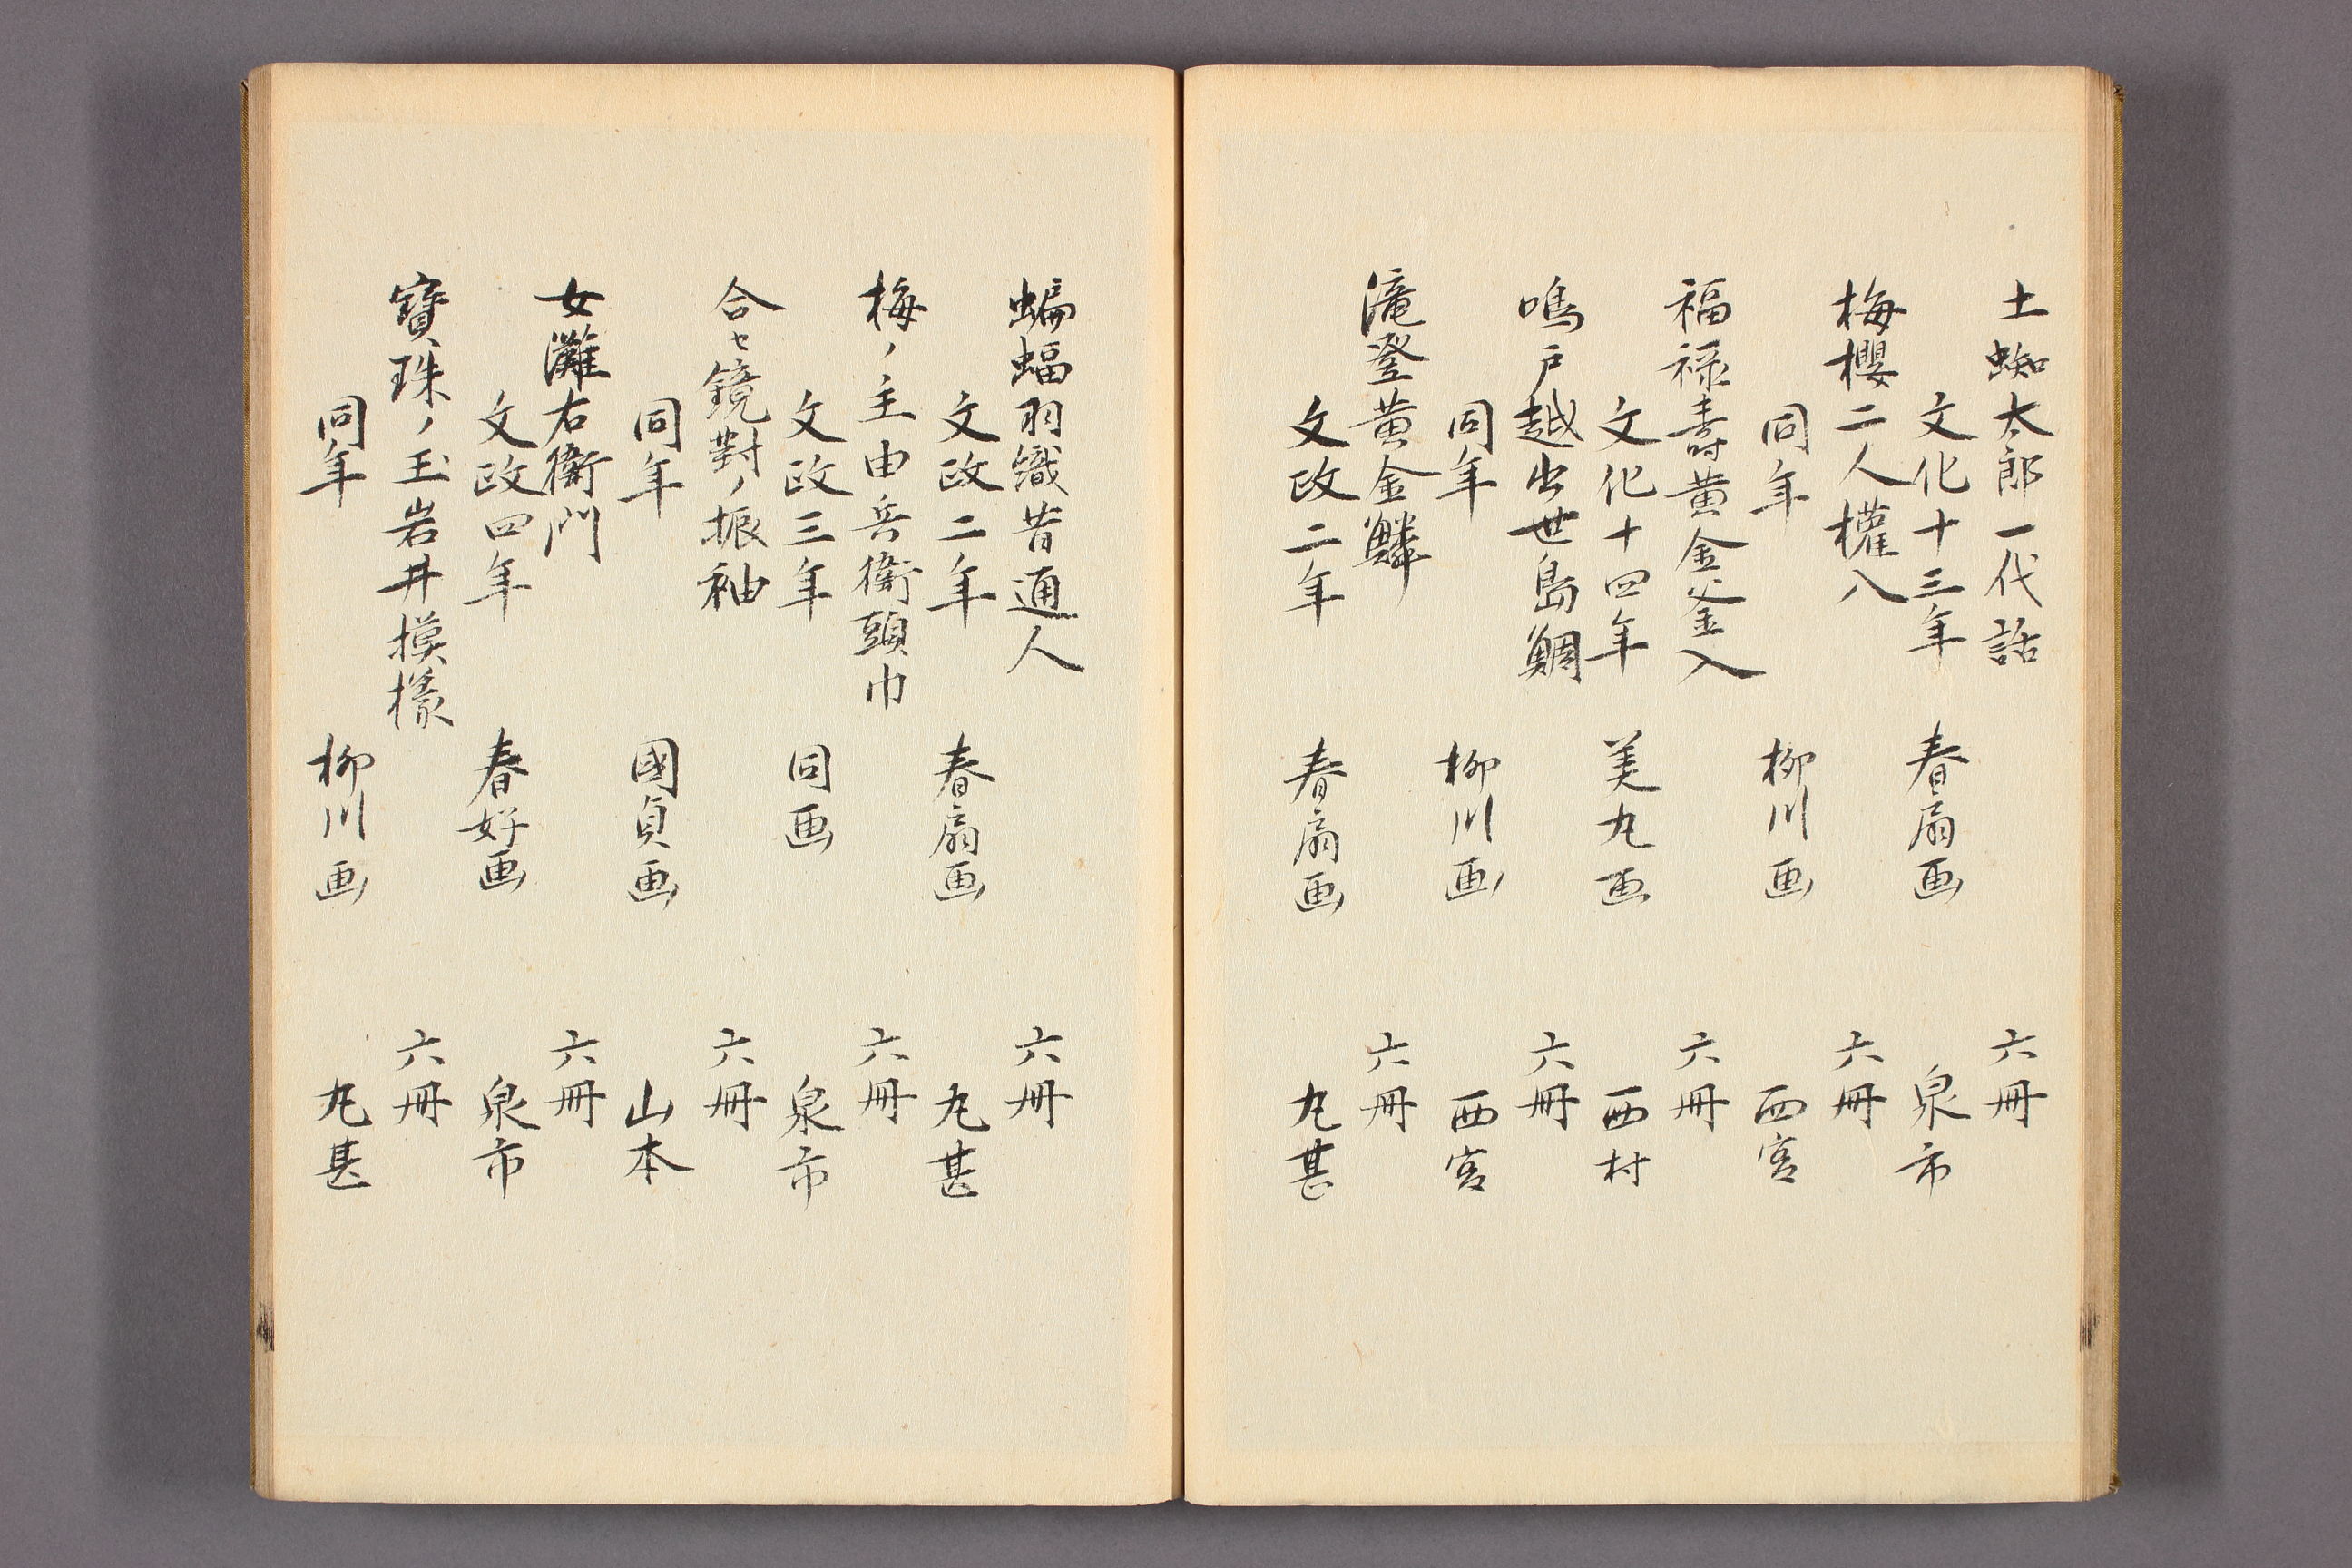 土蜘太郎一代話 六冊
文化十三年 春扇画 泉市
梅櫻二人權八 六冊
同年 柳川画 西宮
福禄壽黄金釜入 六冊
文化十四年 美丸画 西村
鳴戸越出世島鯛 六冊
同年 柳川画 西宮
滝登黄金鱗 六冊
文政二年 春扇画 丸甚
蝙蝠羽織昔通人 六冊
文政二年 春扇画 丸甚
梅ノ主由兵衛頭巾 六冊
文政三年 同画 泉市
合セ鏡對ノ振袖 六冊
同年 國貞画 山本
女灘右衛門 六冊
文政四年 春好画 泉市
寶珠ノ玉岩井摸様 六冊
同年 柳川画 丸甚